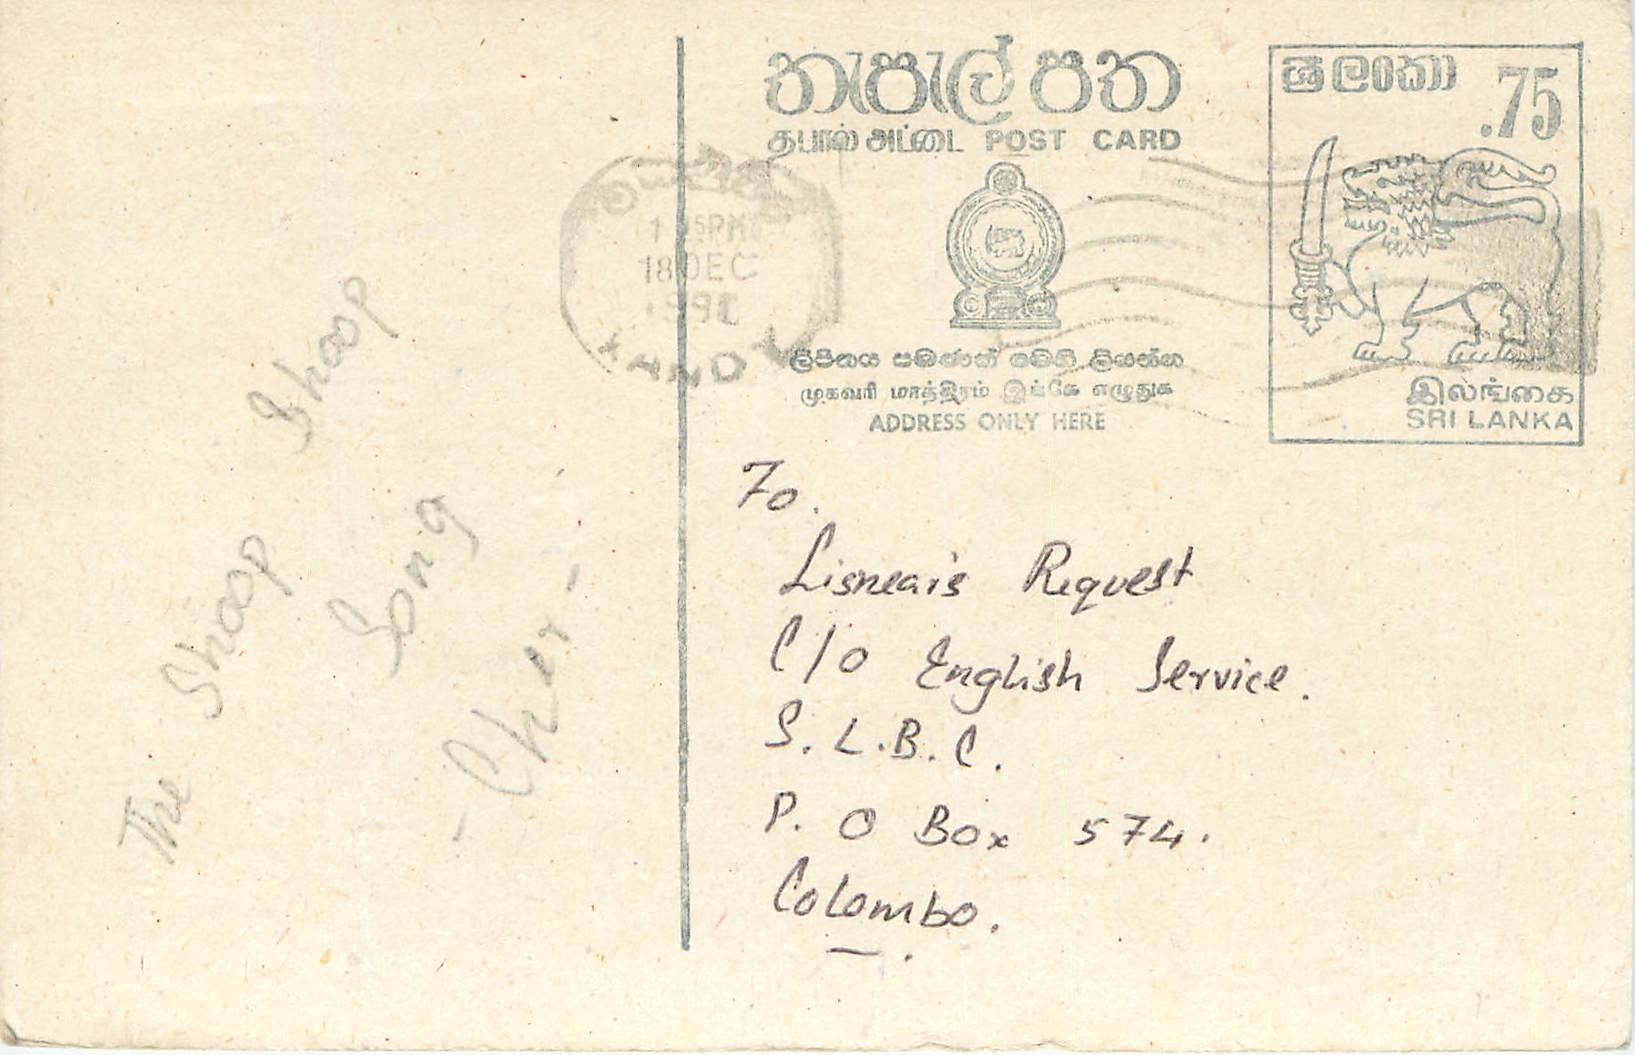 The Shoop Shoop
Song
- Cher -
තැපැල් පත
தபால் அட்டை POST CARD
ලිපිනය පමණක් මෙහි ලියන්න
முகவரி மாத்திரம் இங்கே எழுதுக
ADDRESS ONLY HERE
ශ්‍රී ලංකා .75
இலங்கை
SRI LANKA
18 DEC
To.
Lisneais Request
C/o English Service.
S. L. B. C.
P. O Box 574.
Colombo.